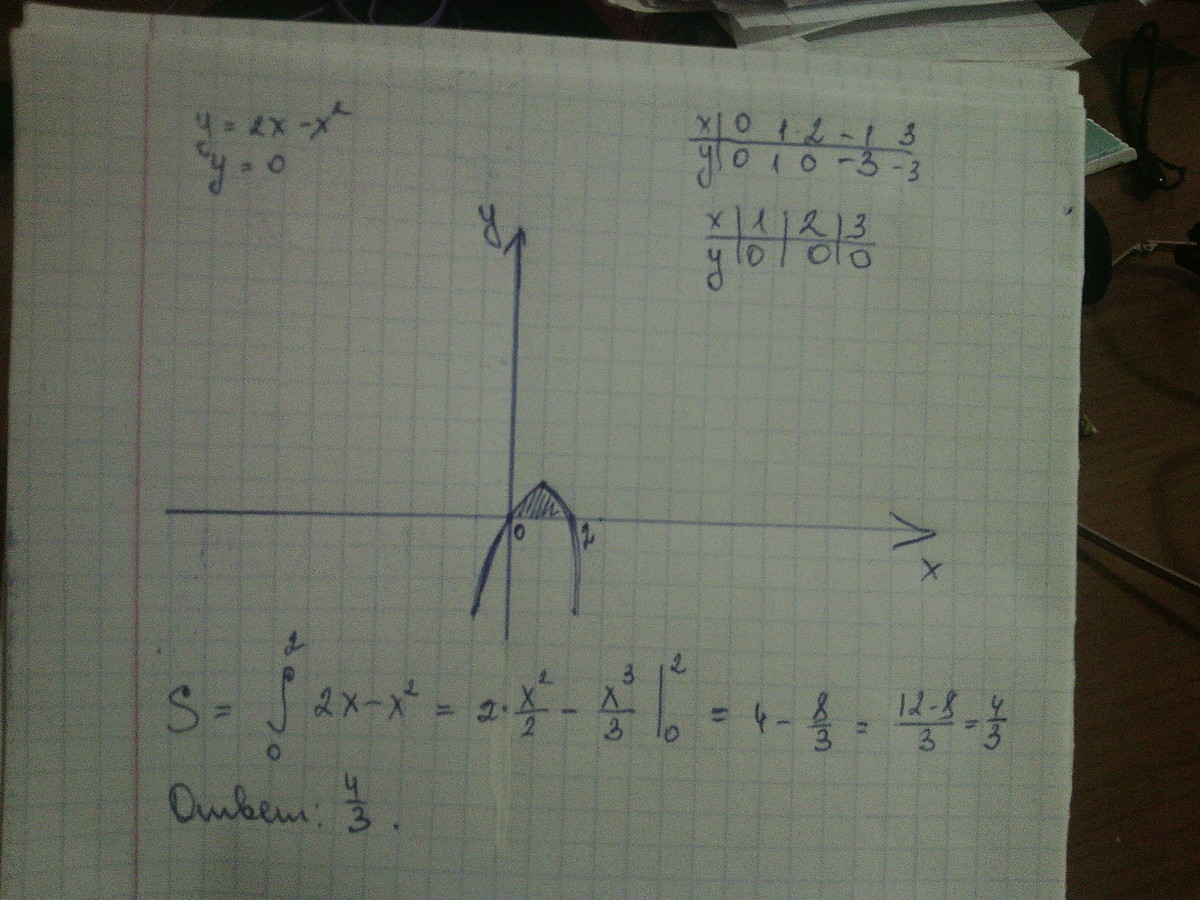 y = 2x - x²
y = 0
x | 0 1 2 -1 3
y | 0 1 0 -3 -3
x | 1 | 2 | 3
y | 0 | 0 | 0
y
0 2
x
S = ∫₀² 2x - x² = 2 · x²/2 - x³/3 |₀² = 4 - 8/3 = 12-8/3 = 4/3
Ответ: 4/3.